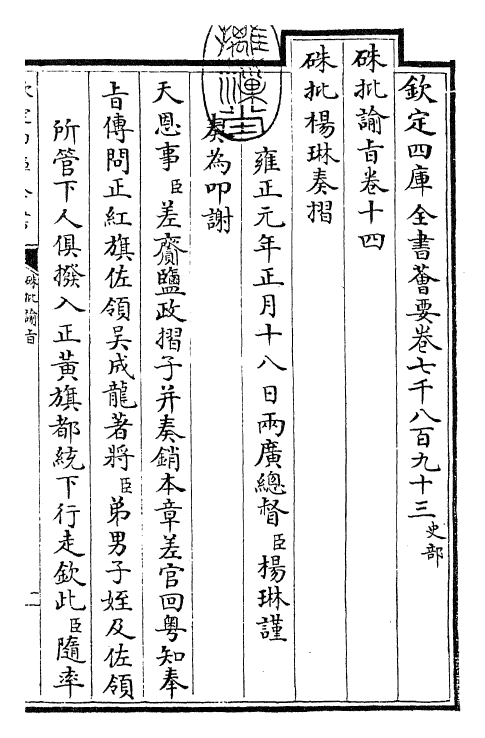 欽定四庫全書薈要卷七千八百九十三史部
硃批諭旨卷十四
硃批楊琳奏摺
雍正元年正月十八日兩廣總督臣楊琳謹
奏為叩謝
天恩事臣差齎鹽政摺子并奏銷本章差官回粤知奉
旨傳問正紅旗佐領吳成龍著將臣弟男子姪及佐領
所管下人俱撥入正黃旗都統下行走欽此臣隨率
硃批諭旨